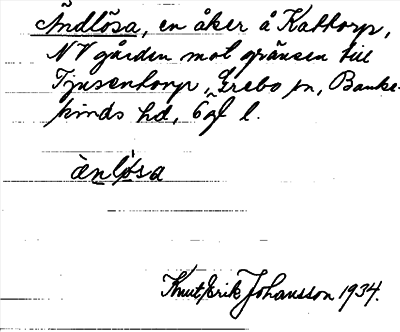 Ändlösa, en åker å Kattorp,
NV gården mot gränsen till
Tjusentorp, Grebo sn, Banke-
kinds hd, Ögl l.
ä̀nlø̀sa
Knut Erik Johansson 1934.